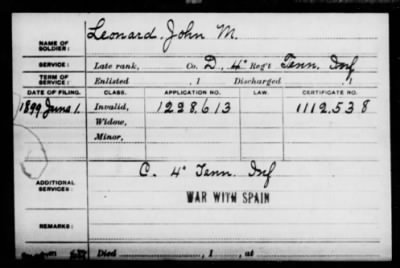 NAME OF SOLDIER: Leonard, John M.
SERVICE: Late rank, Co. D, 4" Reg't Tenn. Inf
TERM OF SERVICE: Enlisted , 1 Discharged , 1
DATE OF FILING. CLASS. APPLICATION NO. LAW. CERTIFICATE NO.
1899 June 1. Invalid, 1228613 1112538
Widow,
Minor,
ADDITIONAL SERVICES: C. 4" Tenn. Inf
WAR WITH SPAIN
REMARKS:
Died , 1 , at